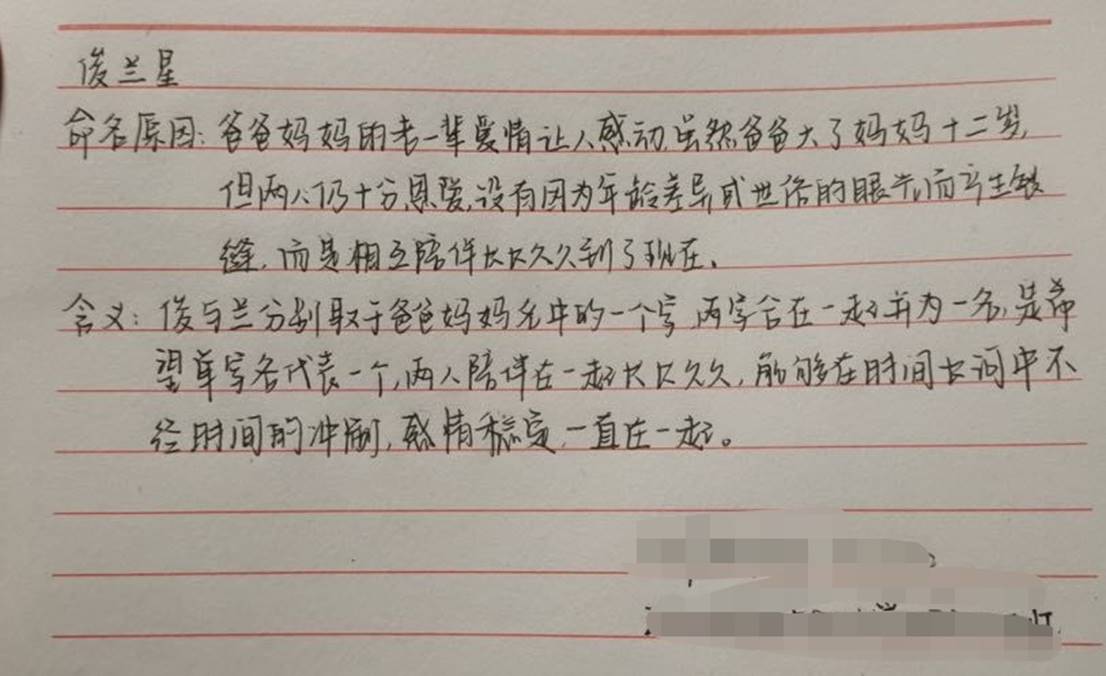 俊兰星
命名原因：爸爸妈妈的老一辈爱情让人感动，虽然爸爸大了妈妈十二岁，
但两人仍十分恩爱，没有因为年龄差异或世俗的眼光而产生裂
缝，而是相互陪伴长长久久到了现在。
含义：俊与兰分别取于爸爸妈妈名中的一个字，两字合在一起并为一名，是希
望单字各代表一个，两人陪伴在一起长长久久，能够在时间长河中不
经时间的冲刷，感情稳定，一直在一起。